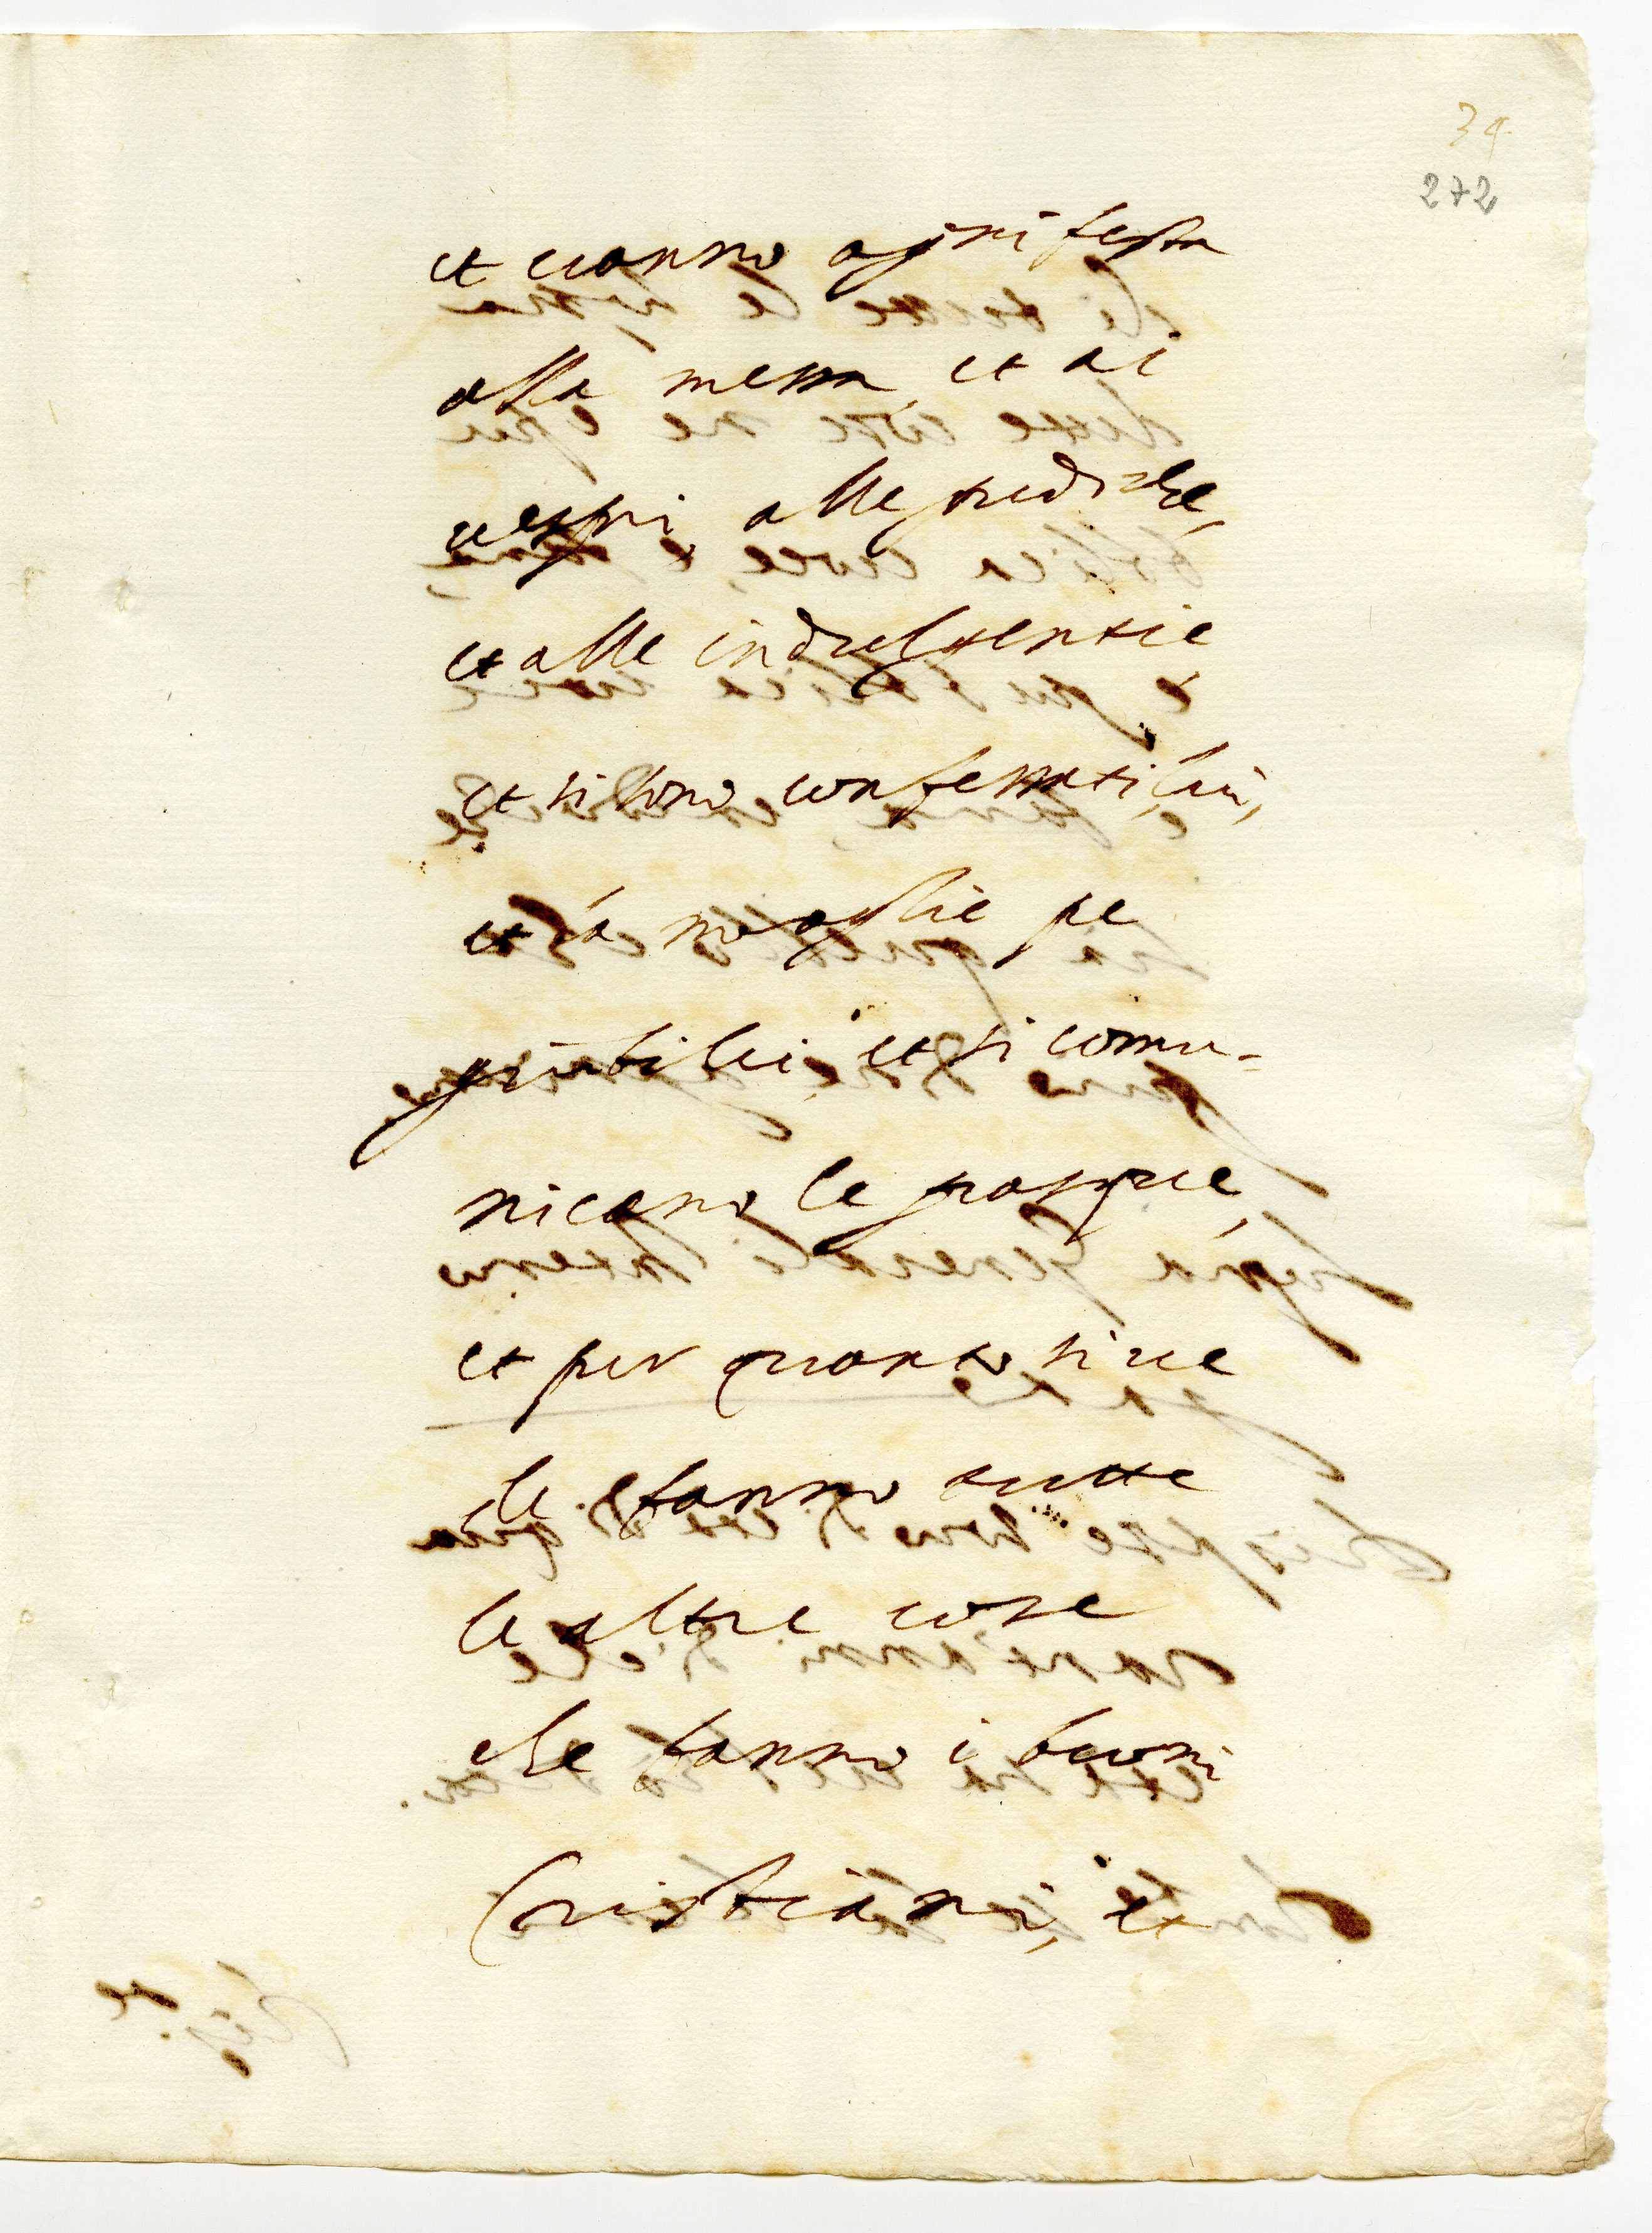 39
272
et vanno ogni festa
alla messa, et ai
vespri, alle prediche,
et alle indulgentie,
et si sono confessati, lui,
et la moglie pe
giubilei, et si comu-
nicano le pasque,
et per quanto si ve
de fanno tutte
le altre cose
che fanno i buoni
Cristiani, et